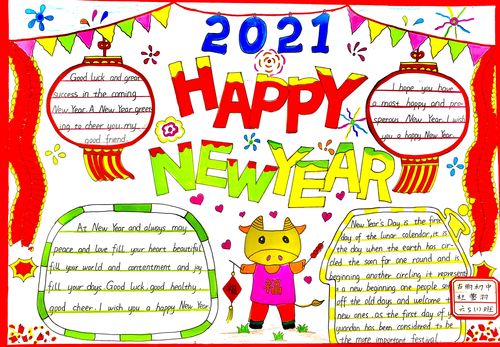 2021
HAPPY
NEW YEAR
Good luck and great
success in the coming
New Year. A New Year greet-
ing to cheer you, my
good friend.
I hope you have
a most happy and pro-
sperous New Year. I wish
you a happy New Year.
At New Year and always may
peace and love fill your heart beautiful
fill your world and contentment and joy
fill your days. Good luck, good healthy
good cheer. I wish you a happy New Year.
福
New Year's Day is the first
day of the lunar calendar, it is
the day when the earth has cir-
cled the soon for one round and is
beginning another circling it represents
a new beginning one people see
off the old days and welcome t
new ones. as the first day of y
yuandan has been considered to be
the more important festival.
六5(1)班